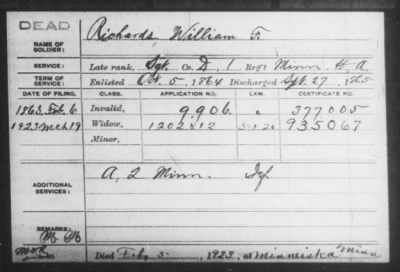 DEAD
NAME OF SOLDIER: Richards, William F.
SERVICE: Late rank, Sgt. Co. D, 1 Reg't Minn H. A.
TERM OF SERVICE: Enlisted Oct. 5, 1864 Discharged Sept. 27, 1865
DATE OF FILING. CLASS. APPLICATION NO. LAW. CERTIFICATE NO.
1863. Feb. 6 Invalid, 9,906 377005
1923 Mch 19 Widow, 1202812 5-1-20 935067
Minor,
ADDITIONAL SERVICES: A, 2 Minn. Inf.
REMARKS:
Died Feby 1923, at Minneiska Minn